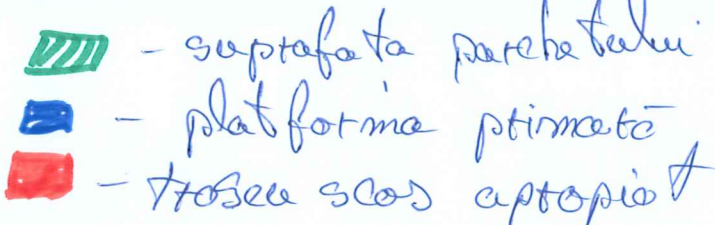 - suprafata parchetului
- platforma primată
- traseu scos apropiat